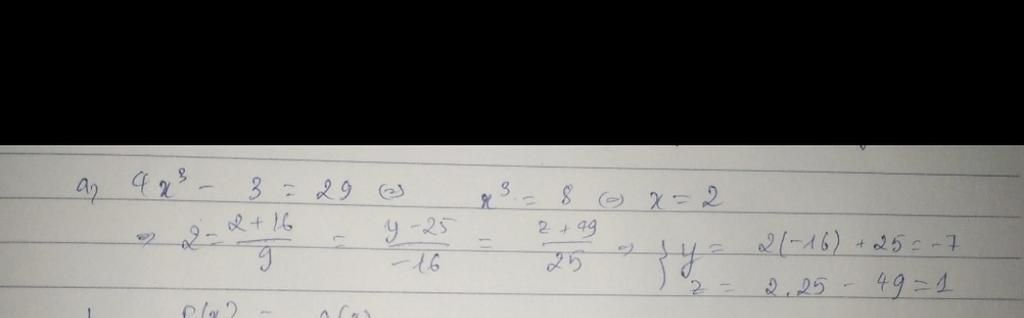 a, 4x³ - 3 = 29 (=) x³ = 8 (=) x = 2
=> 2 = (2 + 16)/9 = (y - 25)/(-16) = (z + 49)/25 => } y = 2(-16) + 25 = -7
z = 2.25 - 49 = 1